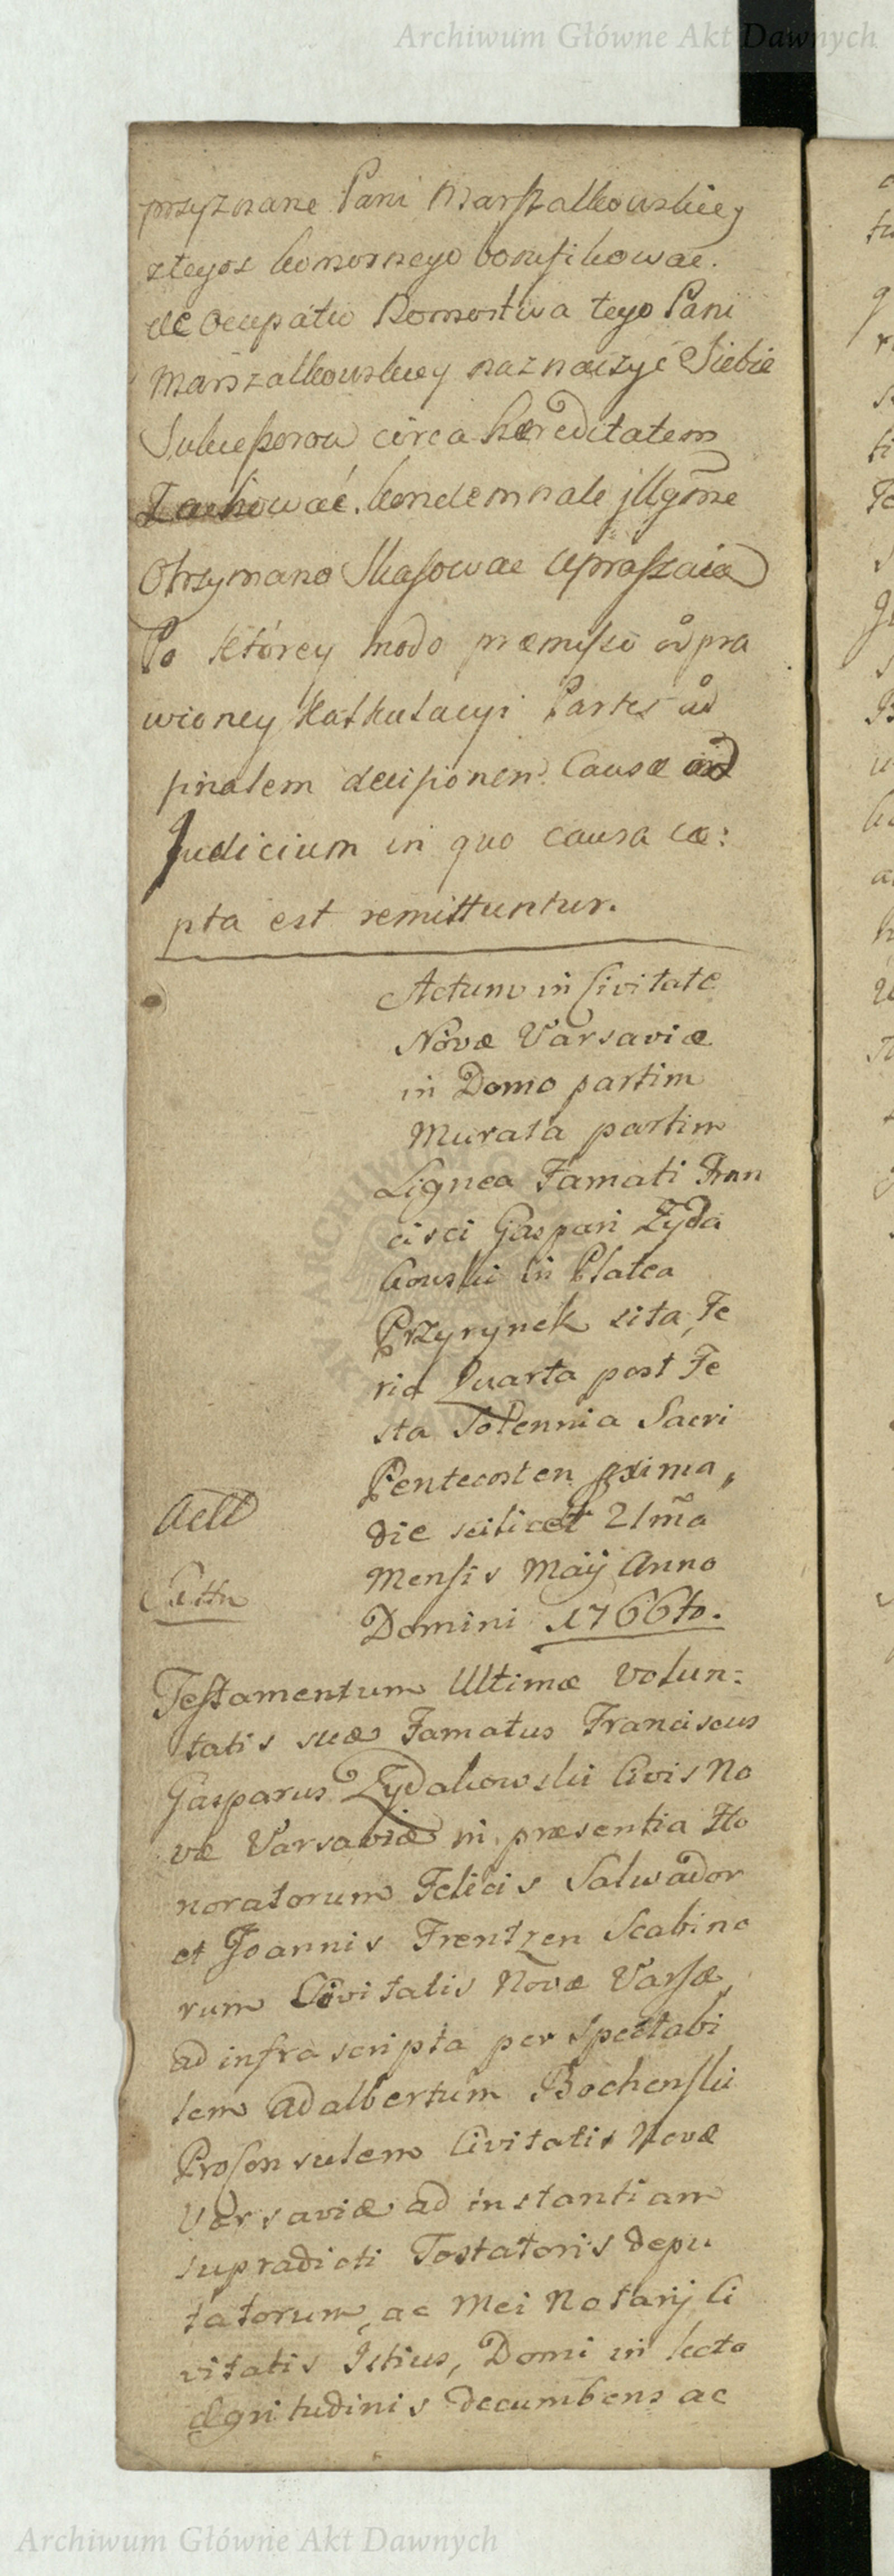 Archiwum Główne Akt Dawnych
przyznane Pani Marszałkowskiey
z tegoż komornego bonifikowac.
de occupatu Komostwa tego Pani
Marszałkowskiey naznaczyć Siebie
Sukcessorow circa hæreditatem
Zachować. kondemnate
Otrzymano Skasowac upraszaia
Po którey modo præmisso odpra
wioney Kalkulacyi Partes ad
finalem decisionem Causæ ad
Judicium in quo causa cæ:
pta est remittuntur.
Actum in Civitate
Novæ Varsaviæ
in Domo partim
Murata partim
Lignea Famati Fran
cisci Gaspari Zyda
kowski in Platea
Przyrynek sita, Fe
ria Quarta post Fe
sta Solennia Sacri
Pentecosten pxima,
die scilicet 21ma
Mensis Maij Anno
Domini 1766to.
Testamentum Ultimæ Volun:
tatis suæ Famatus Franciscus
Gasparus Zydakowski Civis No
væ Varsaviæ in præsentia Ho
noratorum Felicis Salwador
et Joannis Frentzen Scabino
rum Civitatis Novæ Varsæ,
ad infra scripta per Spectabi
lem Adalbertum Bochenski
Proconsulem Civitatis Novæ
Varsaviæ ad instantiam
supradicti Testatoris depu
tatorum, ac Mei Notarij Ci
vitatis Istius, Domi in lecto
ægritudinis decumbens ac
Archiwum Główne Akt Dawnych